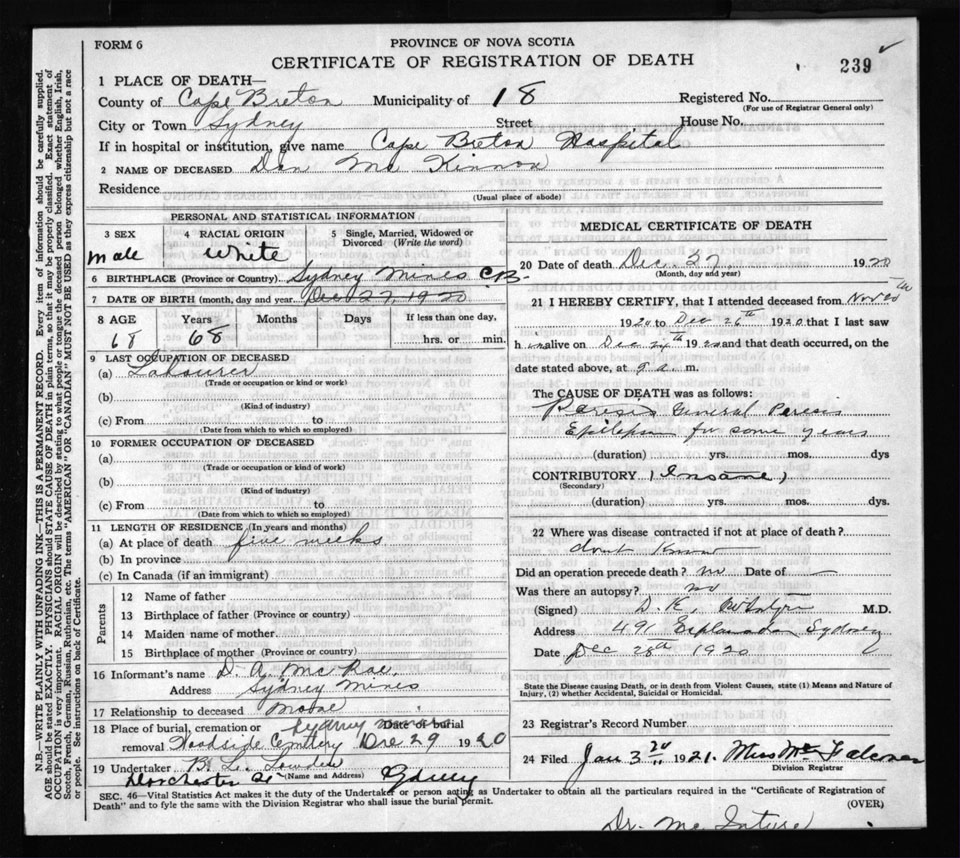 FORM 6
PROVINCE OF NOVA SCOTIA
CERTIFICATE OF REGISTRATION OF DEATH
239
1 PLACE OF DEATH—
County of Cape Breton Municipality of 18 Registered No.
(For use of Registrar General only)
City or Town Sydney Street House No.
If in hospital or institution, give name Cape Breton Hospital
2 NAME OF DECEASED Dan Mc Kinnon
Residence
(Usual place of abode)
PERSONAL AND STATISTICAL INFORMATION
3 SEX 4 RACIAL ORIGIN 5 Single, Married, Widowed or Divorced (Write the word)
male White
6 BIRTHPLACE (Province or Country). Sydney Mines C.B.
7 DATE OF BIRTH (month, day and year. Dec 27, 1920
8 AGE Years Months Days If less than one day,
68 68 hrs. or min.
9 LAST OCCUPATION OF DECEASED
(a) Labourer
(Trade or occupation or kind or work)
(b)
(Kind of industry)
(c) From to
(Date from which to which so employed)
10 FORMER OCCUPATION OF DECEASED
(a)
(Trade or occupation or kind of work)
(b)
(Kind of industry)
(c) From to
(Date from which to which so employed)
11 LENGTH OF RESIDENCE (In years and months)
(a) At place of death five weeks
(b) In province
(c) In Canada (if an immigrant)
Parents
12 Name of father
13 Birthplace of father (Province or country)
14 Maiden name of mother
15 Birthplace of mother (Province or country)
16 Informant's name D. A. McRae,
Address Sydney Mines
17 Relationship to deceased
18 Place of burial, cremation or Sydney Mines Date of burial
removal Woodside Cemetery Dec 29 1920
19 Undertaker B. L.
(Name and Address)
Dorchester St Sydney
MEDICAL CERTIFICATE OF DEATH
20 Date of death Dec. 27 1920
(Month, day and year)
21 I HEREBY CERTIFY, that I attended deceased from Nov 20th
1920 to Dec 26th 1920 that I last saw
h im alive on Dec 1920 and that death occurred, on the
date stated above, at 9 a. m.
The CAUSE OF DEATH was as follows:
Paresis General Paresis
Epilepsy for some years
(duration) yrs. mos. dys
CONTRIBUTORY (Insane)
(Secondary)
(duration) yrs. mos. dys.
22 Where was disease contracted if not at place of death?
dont know
Did an operation precede death? no Date of —
Was there an autopsy? no
(Signed) D. K. McIntyre M.D.
Address 491 Esplanade Sydney
Date Dec 28th 1920
State the Disease causing Death, or in death from Violent Causes, state (1) Means and Nature of
Injury, (2) whether Accidental, Suicidal or Homicidal.
23 Registrar's Record Number
24 Filed Jan 3 1921. Miss
Division Registrar
SEC. 46—Vital Statistics Act makes it the duty of the Undertaker or person acting as Undertaker to obtain all the particulars required in the "Certificate of Registration of
Death" and to fyle the same with the Division Registrar who shall issue the burial permit.
(OVER)
Dr. McIntyre
N.B.—WRITE PLAINLY WITH UNFADING INK—THIS IS A PERMANENT RECORD. Every item of information should be carefully supplied.
AGE should be stated EXACTLY. PHYSICIANS should STATE CAUSE OF DEATH in plain terms, so that it may be properly classified. Exact statement of
OCCUPATION is very important. RACIAL ORIGIN will be described by stating to what people or tongue the deceased person belonged whether English, Irish,
Scotch, French, German, Russian, Ruthenian, etc. The terms "AMERICAN" OR "CANADIAN" MUST NOT BE USED as they express citizenship but not a race
or people. See instructions on back of Certificate.